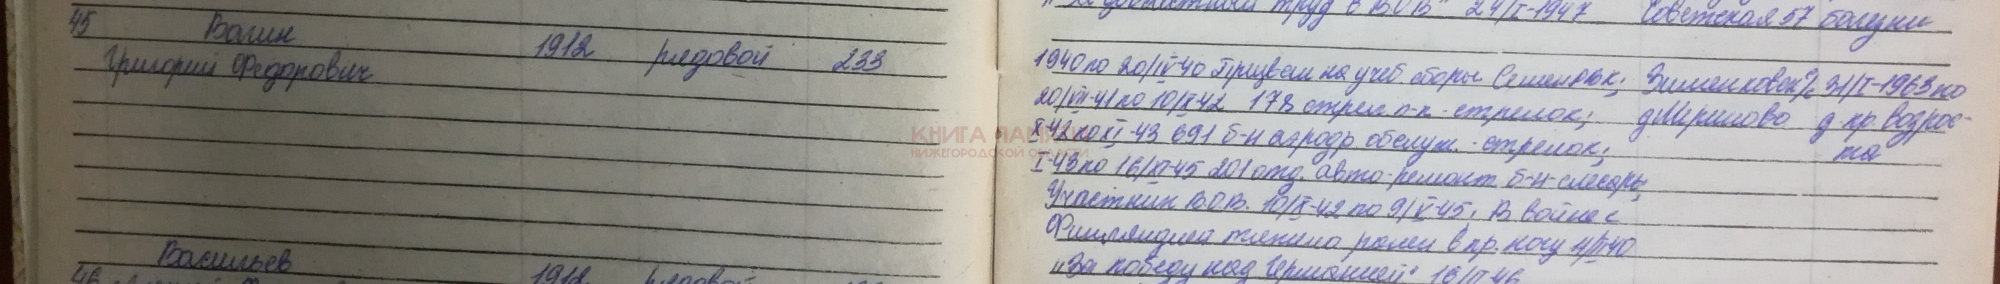 45 Вагин
Григорий Федорович 1912 рядовой 233
Васильев
46 1912 рядовой
труд в В.О.В" 24/I-1947 Советская 57 болезни
1940 по 20/IV-40 Призван на учеб. сборы Зименковск с/с 31/I-1963 по
20/VIII-41 по 10/X-42 178 стрел. п-к - стрелок; д. пр. возрос-
X-42 по XI-43 691 б-н аэродр. обслуж. - стрелок; та
I-43 по 16/XI-45 201 отд. авто-ремонт. б-н - слесарь;
Участник В.О.В. 10/X-42 по 9/V-45. В войне с
Финляндией тяжело ранен в пр. ногу 4/III-40
"За победу над Германией" 16/II-46
КНИГА ПАМЯТИ
НИЖЕГОРОДСКОЙ ОБЛАСТИ